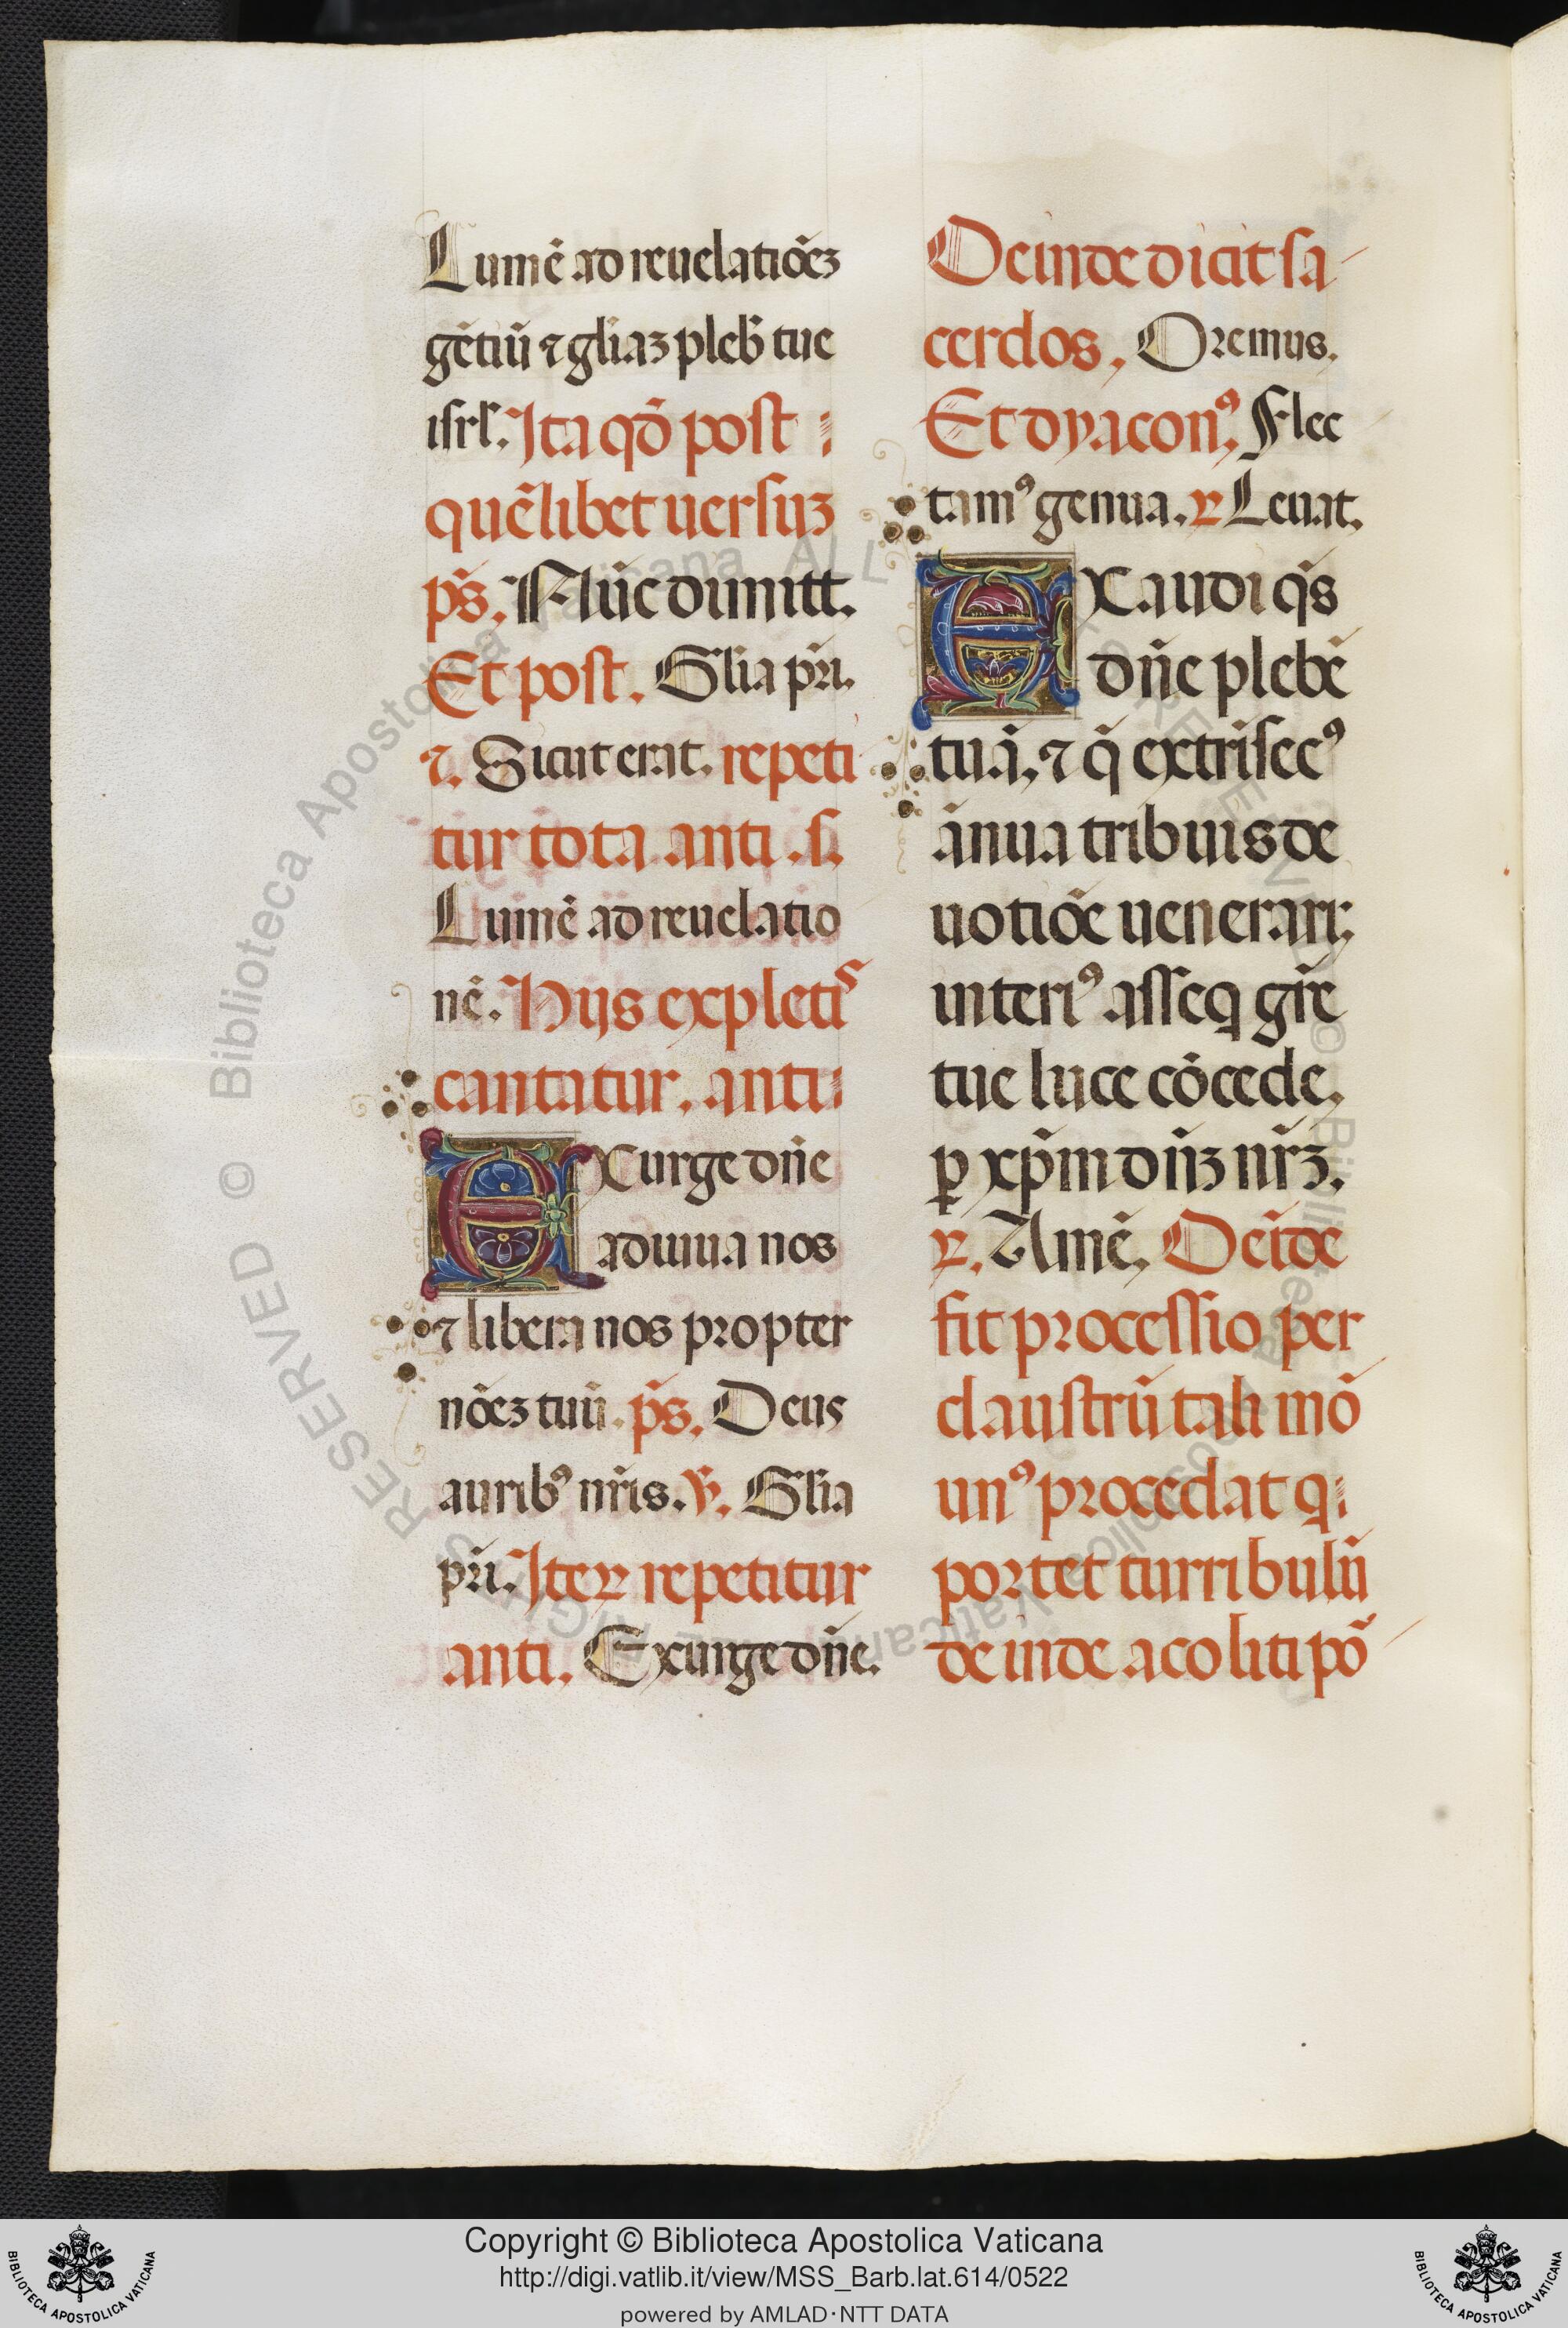 Lumē ad reuelatiōeꝫ
gētiū ⁊ gl̄iaꝫ pleb̄ tue
isrl̄. Ita qō post
quēlibet uersuꝫ
p̄s. Nūc dimitt.
Et post. Gl̄ia pr̄i.
⁊. Sicut erat. repeti
tur tota anti .s.
Lumē ad reuelatio
nē. Hijs expletis
cantatur. anti
EXurge dn̄e
adiuua nos
⁊ libera nos propter
nōeꝫ tuū. p̄s. Deus
auribꝰ nr̄is. ℣. Gl̄ia
pr̄i. Iteꝝ repetitur
anti. Exurge dn̄e.
Deinde dicit sa
cerdos. Oremus.
Et dyaconꝰ. Flec
tamꝰ genua. ℟ Leuat.
EXaudi q̄s
dn̄e plebē
tuā. ⁊ q̄ extrīsecꝰ
ānua tribuis de
uotiōe uenerari.
interiꝰ asseq̄ gr̄e
tue luce cōcede.
ꝑ xp̄m dn̄ꝫ nr̄ꝫ.
℟. Amē. Deīde
fit processio per
claustrū tali mō
unꝰ procedat qi
portet turribulū
deinde acoliti pō
© Biblioteca Apostolica Vaticana ALL RIGHTS RESERVED
Copyright © Biblioteca Apostolica Vaticana
http://digi.vatlib.it/view/MSS_Barb.lat.614/0522
powered by AMLAD·NTT DATA
BIBLIOTECA APOSTOLICA VATICANA
BIBLIOTECA APOSTOLICA VATICANA